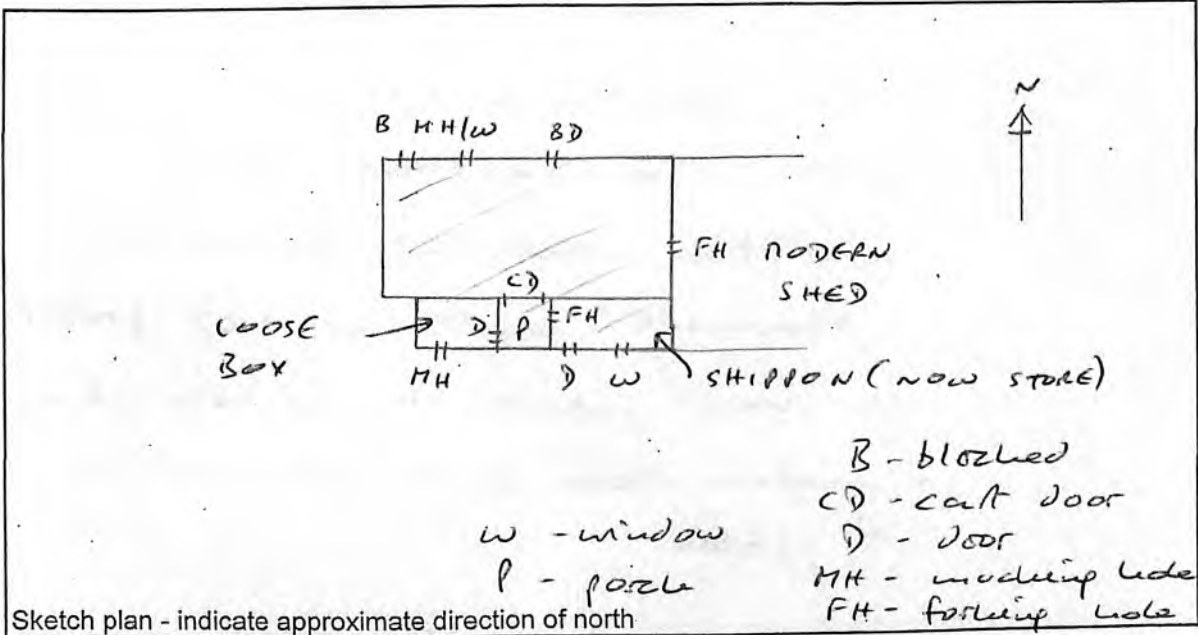 N
B MH/W BD
FH MODERN
SHED
CD
LOOSE
BOX
D P FH
MH D W SHIPPON (NOW STORE)
B - blocked
CD - cart door
W - window
D - door
P - porch
MH - mucking hole
FH - forking hole
Sketch plan - indicate approximate direction of north